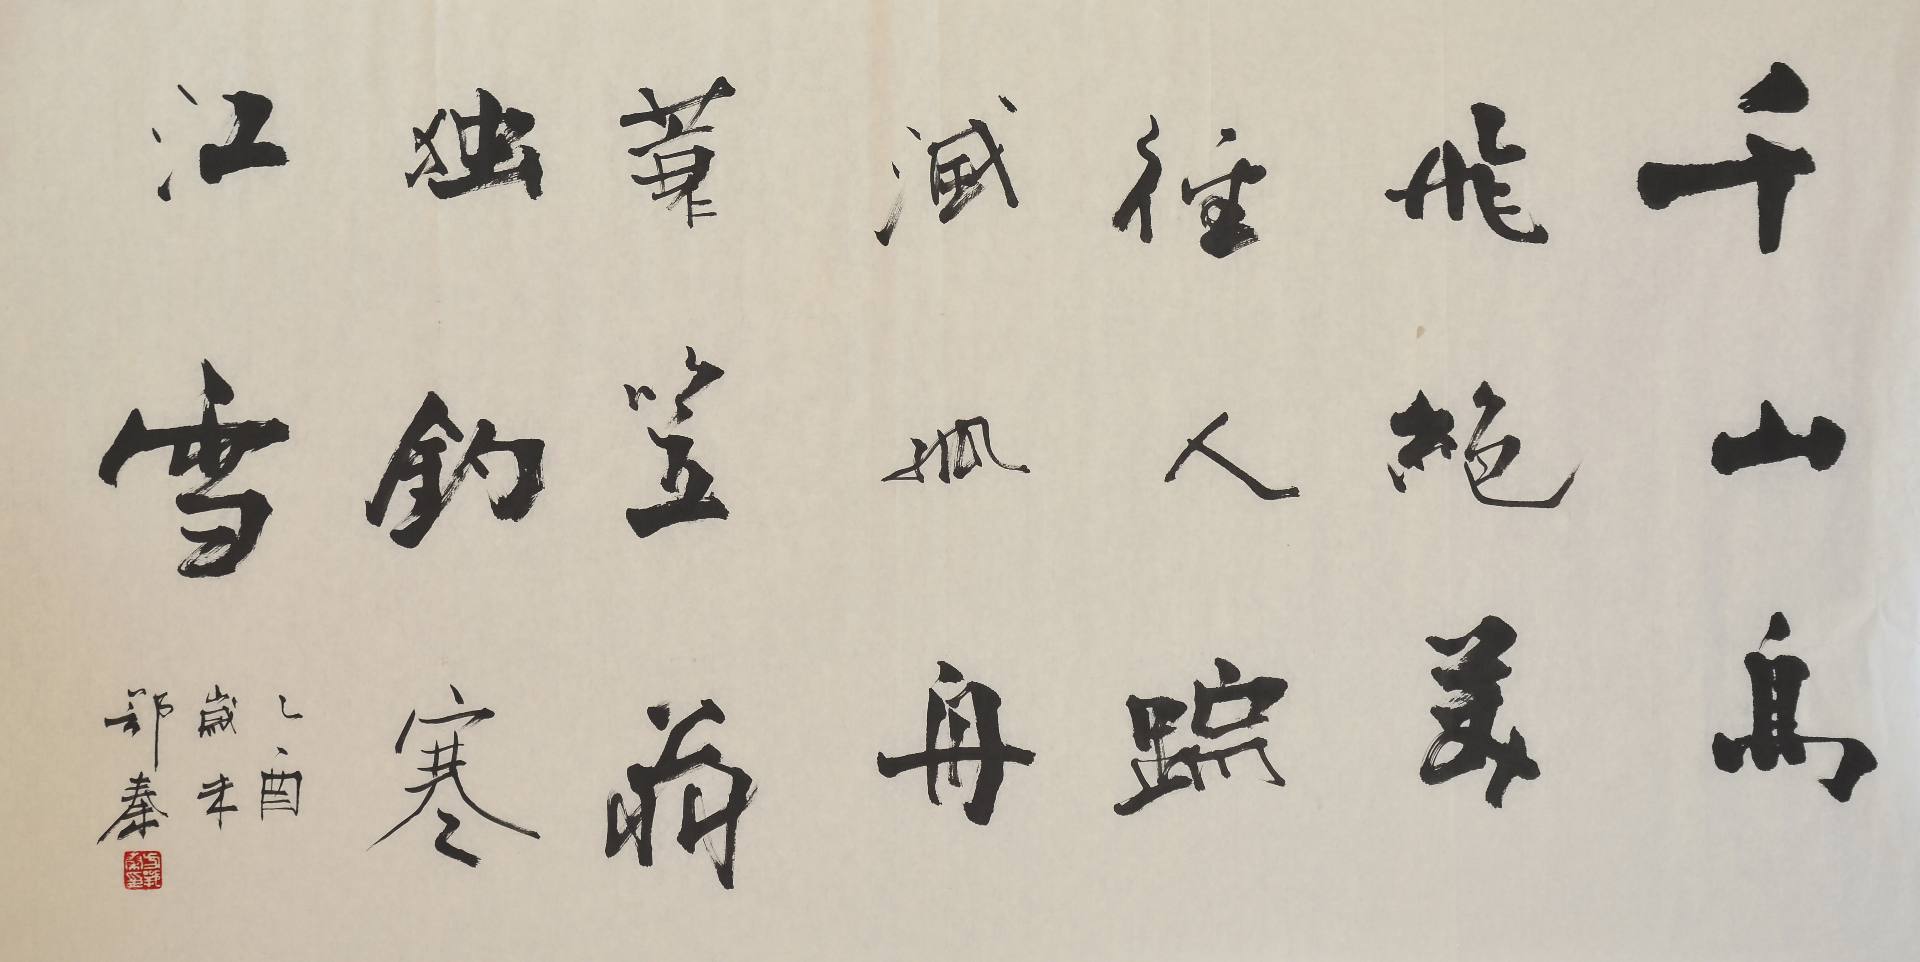 千山鳥
飛絶萬
徑人踪
滅孤舟
蓑笠翁
独釣寒
江雪
乙酉
歲末
秦